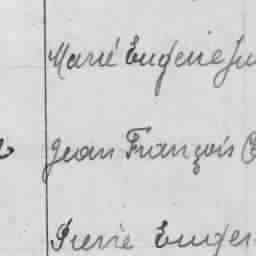 Marie Eugenie
Jean François
Pierre Eugen